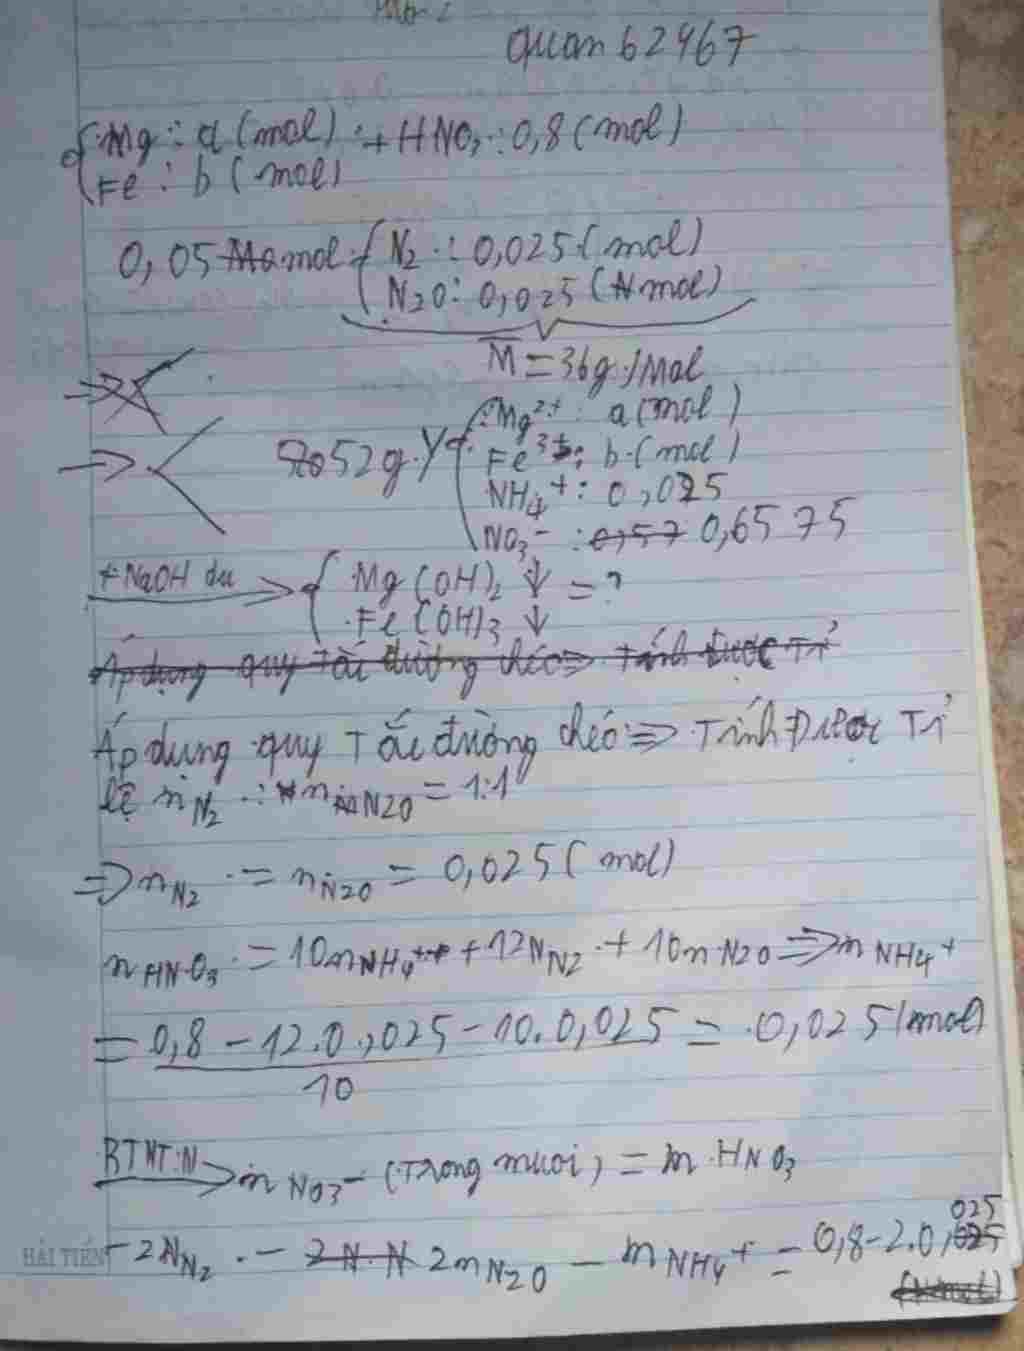 quan 62467
Mg : a (mol) + HNO3 : 0,8 (mol)
Fe : b (mol)
0,05 mol { N2 : 0,025 (mol)
N2O : 0,025 (mol)
M̅ = 36g/mol
Mg2+ : a (mol)
52g Y { Fe3+ : b (mol)
NH4+ : 0,025
NO3- : 0,57 0,6575
+ NaOH dư → { Mg(OH)2 ↓ = ?
Fe(OH)3 ↓
Áp dụng quy tắc đường chéo => tính được Tỉ
Áp dụng quy Tắc đường chéo => Tính Được Tỉ
lệ nN2 : nN2O = 1:1
=> nN2 = nN2O = 0,025 (mol)
nHNO3 = 10nNH4+ + 12NN2 + 10nN2O => nNH4+
= 0,8 - 12.0,025 - 10.0,025 / 10 = 0,025 (mol)
BTNT N → nNO3- (Trong muối) = nHNO3
025
HẢI TIẾN - 2NN2 - 2N N 2nN2O - nNH4+ = 0,8 - 2.0,025